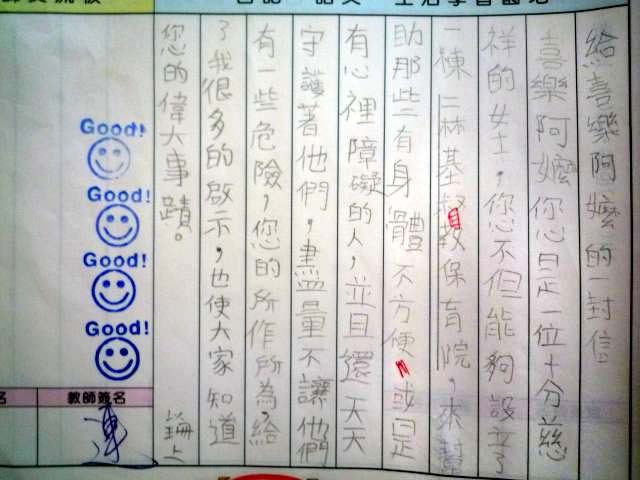 給喜樂阿嬤的一封信
喜樂阿嬤您是一位十分慈
祥的女士,您不但能夠設立了
一棟二林基督教保育院,來幫
助那些有身體不方便或是
有心裡障礙的人,並且還天天
守護著他們,盡量不讓他們
有一些危險,您的所作所為,給
了我很多的啟示,也使大家知道
您的偉大事蹟。 上
Good!
Good!
Good!
Good!
教師簽名
名